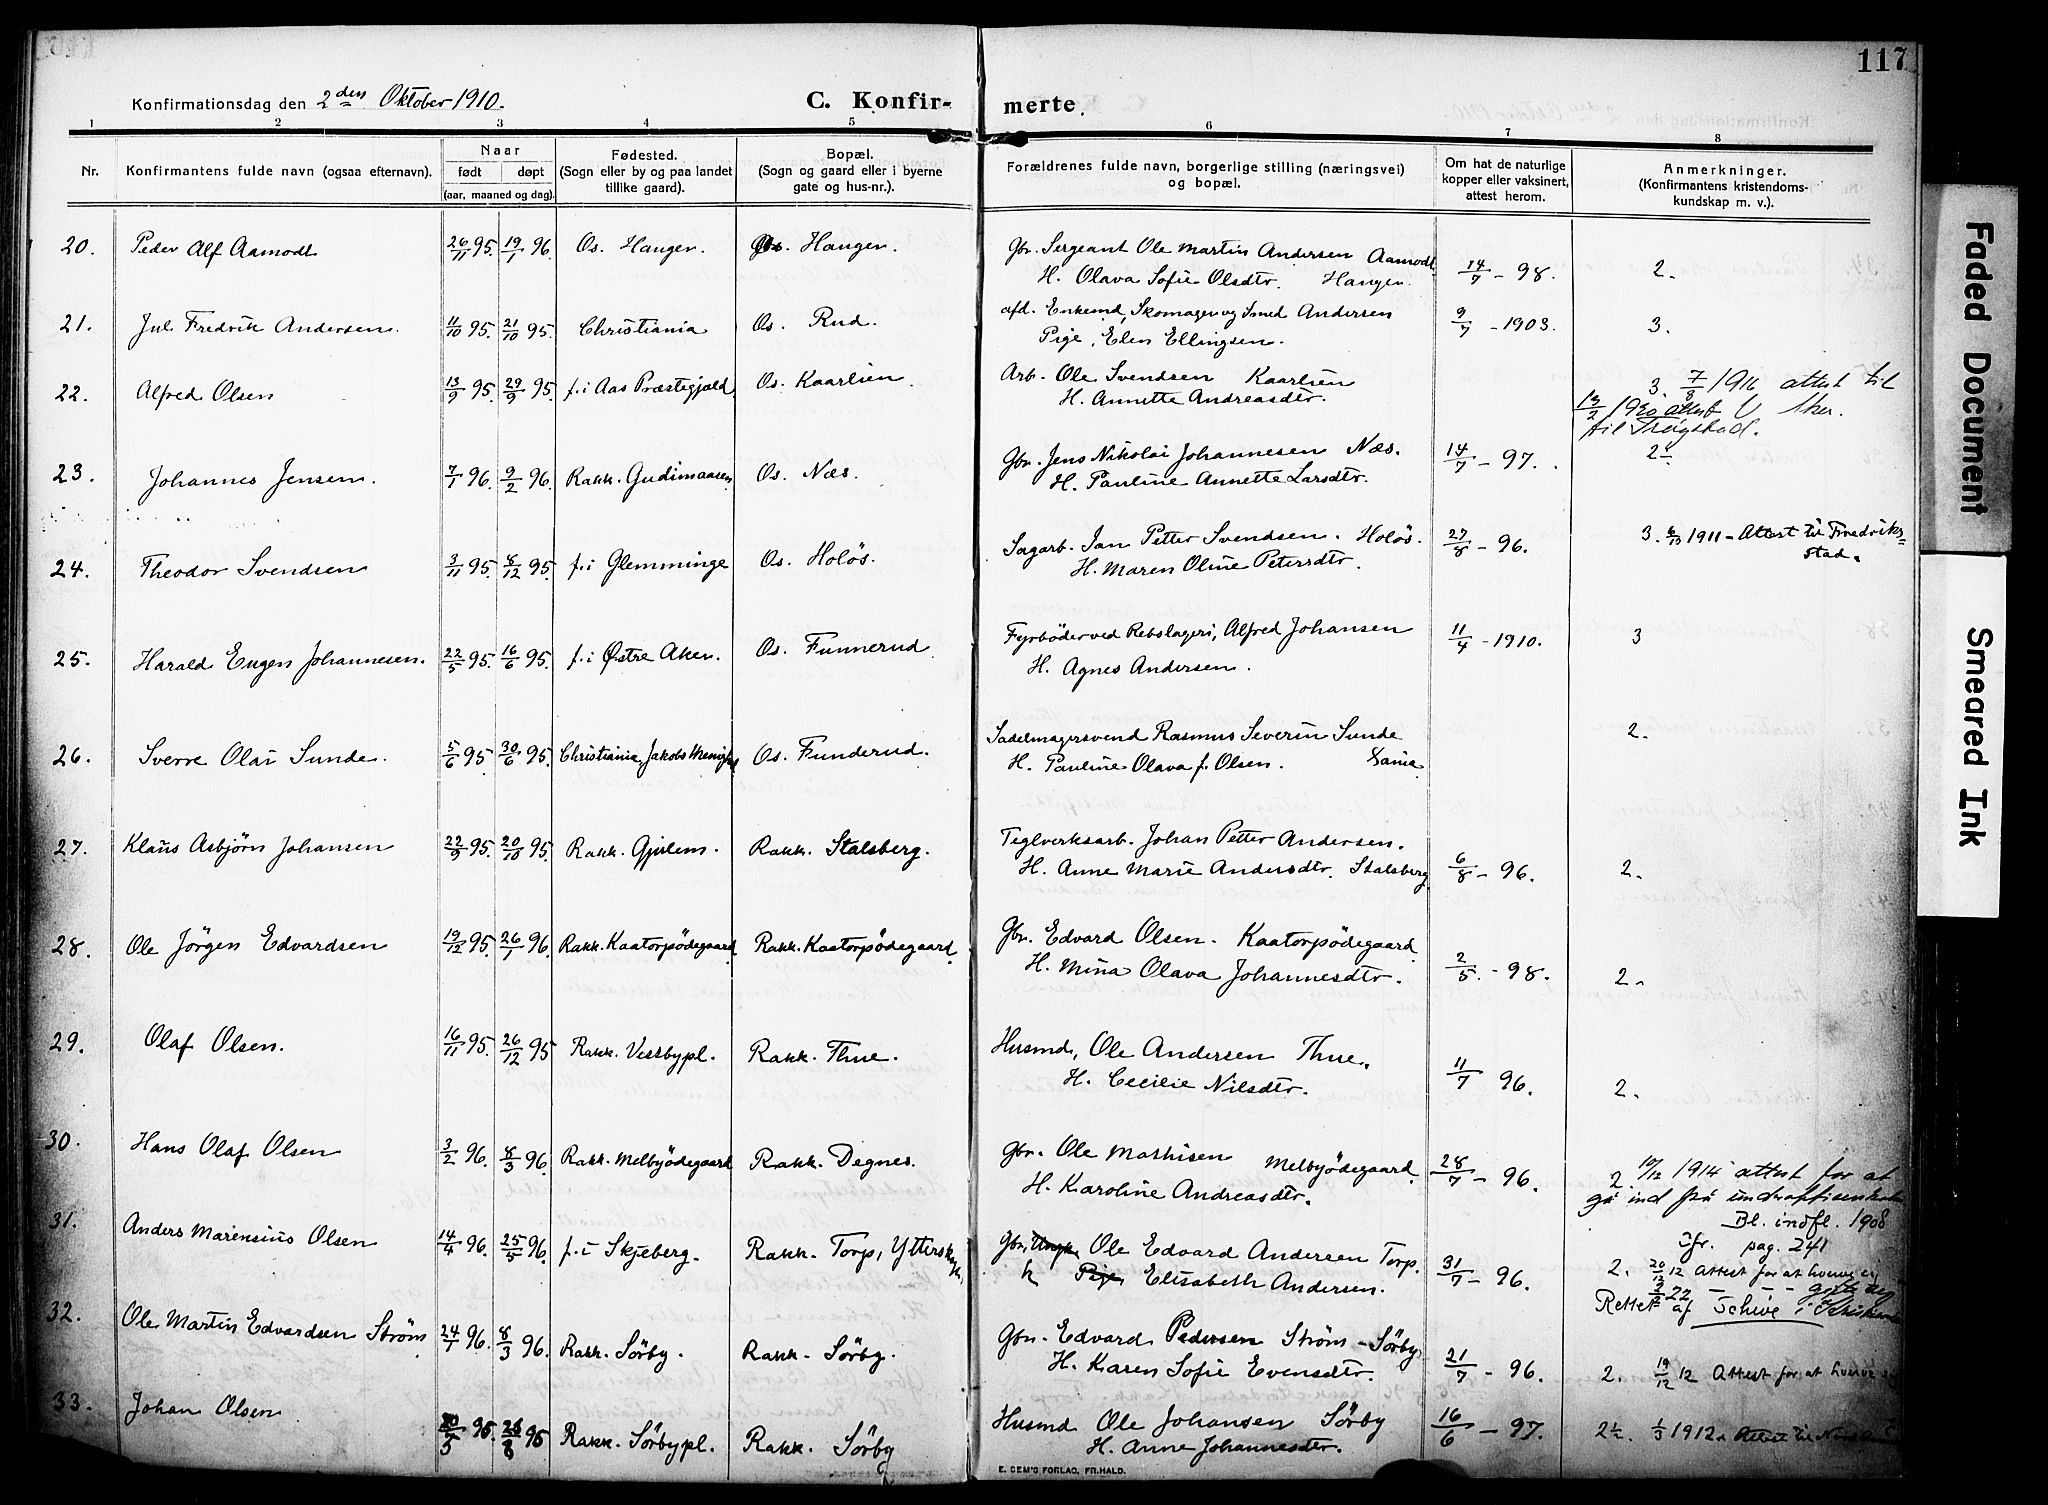 117
Konfirmationsdag den 2den Oktober 1910.
C. Konfir-merte.
1 2 3 4 5 6 7 8
Nr.
Konfirmantens fulde navn (ogsaa efternavn).
Naar
født døpt
(aar, maaned og dag).
Fødested.
(Sogn eller by og paa landet
tillike gaard).
Bopæl.
(Sogn og gaard eller i byerne
gate og hus-nr.).
Forældrenes fulde navn, borgerlige stilling (næringsvei)
og bopæl.
Om hat de naturlige
kopper eller vaksinert,
attest herom.
Anmerkninger.
(Konfirmantens kristendoms-
kundskap m. v.).
20. Peder Alf Aamodt 26/11 95 19/1 96 Os. Haugen. Os. Haugen. Gbr. Sergeant Ole Martin Andersen Aamodt
H. Olava Sofie Olsdtr. Haugen. 14/7 - 98. 2.
21. Jul. Fredrik Andersen. 11/10 95. 21/10 95. Christiania Os. Rud. afd. Enkemd, Skomager og Smed Andersen
Pige, Elen Ellingsen. 9/7 - 1903. 3.
22. Alfred Olsen 13/9 95. 29/9 95. f. i Aas Præstegjæld Os. Kaarlien. Arb. Ole Svendsen Kaarlien
H. Annette Andreasdtr. 3. 7/8 1916 attest til
13/2 1920 attest
til Trøgstad.
23. Johannes Jensen. 7/1 96. 9/2 96. Rakk. Gudimaasen Os. Næs. Gbr. Jens Nikolai Johannesen Næs.
H. Pauline Annette Larsdtr. 14/7 - 97. 2
24. Theodor Svendsen 3/11 95. 8/12 95. f. i Glemminge Os. Holös. Sagarb. Jan Petter Svendsen. Holös.
H. Maren Oline Petersdtr. 27/8 - 96. 3. 1911 - Attest til Fredrik-
stad.
25. Harald Eugen Johannesen. 22/5 95. 16/6 95. f. i Østre Aker. Os. Funnerud. Fyrböder ved Rebslageri, Alfred Johansen
H. Agnes Andersen. 11/4 - 1910. 3
26. Sverre Olai Sunde. 5/6 95 30/6 95. Christiania, Jakobs Os. Funderud. Sadelmagersvend Rasmus Severin Sunde
H. Pauline Olava f. Olsen. Xania 2.
27. Klaus Asbjörn Johansen 22/9 95. 20/10 95. Rakk. Gjulem. Rakk. Stalsberg. Teglverksarb. Johan Petter Andersen.
H. Anne Marie Andersdtr. Stalsberg 6/8 - 96. 2.
28. Ole Jörgen Edvardsen 19/12 95. 26/1 96. Rakk. Kaatorpödegaard Rakk. Kaatorpödegaard. Gbr. Edvard Olsen. Kaatorpödegaard
H. Mina Olava Johannesdtr. 2/5. - 98. 2.
29. Olaf Olsen. 16/11 95. 26/12 95 Rakk. Vestbypl. Rakk. Thue. Husmd, Ole Andersen Thue.
H. Cecilie Nilsdtr. 11/7 96. 2.
30. Hans Olaf Olsen 3/2 96. 8/3 96. Rakk. Melbyödegaard Rakk. Degnes. Gbr. Ole Mathisen Melbyödegaard.
H. Karoline Andreasdtr. 28/7 - 96. 2. 1914 attest for at
gå ind på
31. Anders Marensius Olsen 14/4 96. 25/5 96. f. i Skjeberg. Rakk. Torp, Gbr. Ole Edvard Andersen Torp.
h Pige Elisabeth Andersen. 31/7 - 96. Bl. indfl. 1908
Jfr. pag. 241
2. 20/12 12 Attest for at hverve
Rettet af
32. Ole Martin Edvardsen Ström 24/1 96. 8/3 96. Rakk. Sörby. Rakk. Sörby. Gbr. Edvard Pedersen Ström - Sörby
H. Karen Sofie Evensdtr. 21/7 - 96. 2. 19/12 12 Attest for at hverve
33. Johan Olsen 20/5 95. 95 Rakk. Sörbypl. Rakk. Sörby Husmd Ole Johansen Sörby
H. Anne Johannesdtr. 16/6 - 97. 2½. 1912. Attest til
E. SEM'S FORLAG, FR.HALD.
Faded Document
Smeared Ink